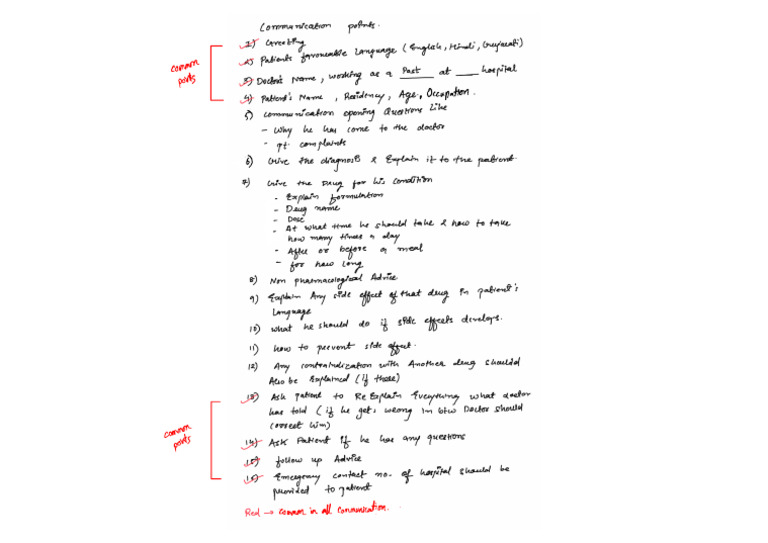 Communication points.
1) Greeting
2) Patients favourable Language (English, Hindi, Gujarati)
3) Doctor's Name, working as a Post at ___ hospital
4) Patient's Name, Residency, Age, Occupation.
common points
5) Communication opening Questions like
- Why he has come to the doctor
- pt. complaints
6) Give the diagnosis & Explain it to the patient.
7) Give the Drug for his condition
- Explain formulation
- Drug name
- Dose
- At what time he should take & how to take
how many times a day
- After or before a meal
- for how long
8) Non pharmacological Advice
9) Explain Any side effect of that drug in patient's
Language
10) What he should do if side effects develops.
11) how to prevent side effect.
12) Any contraindization with Another drug should
Also be Explained (if those)
13) Ask Patient to Re Explain Everything what doctor
has told (if he gets wrong in btw Doctor should
correct him)
14) Ask Patient if he has any questions
15) follow up Advice
16) Emergency contact no. of hospital should be
provided to patient
common points
Red → common in all communication.